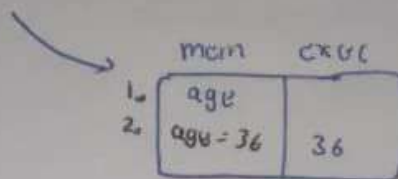 mem exec
1. age
2. age = 36 36